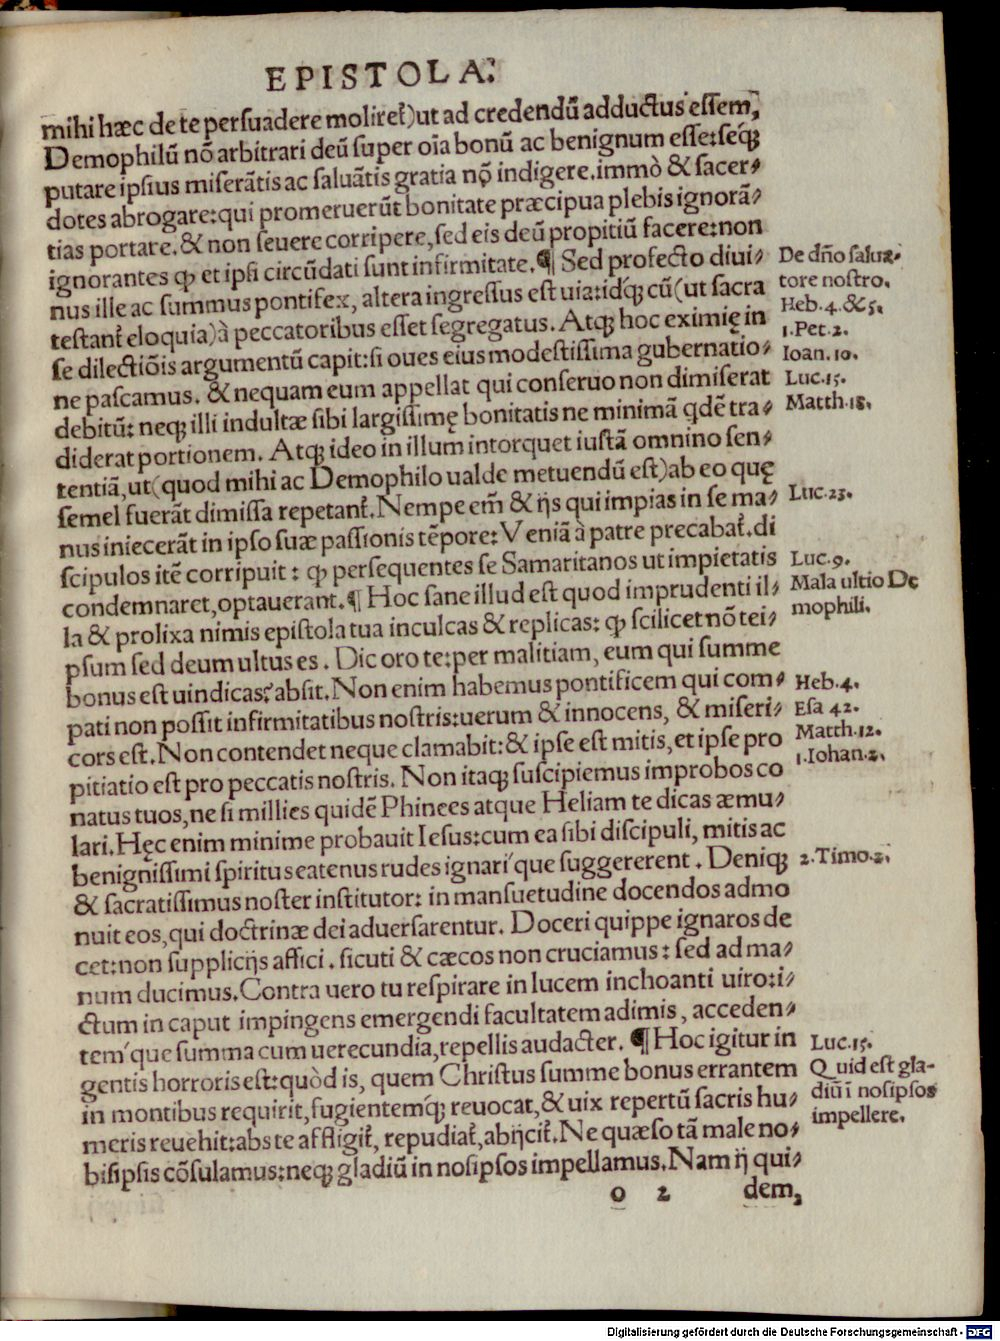 EPISTOLA:
mihi hæc de te persuadere moliret̃)ut ad credendũ adductus essem,
Demophilũ nõ arbitrari deũ super oĩa bonũ ac benignum esse:seq́ꝫ
putare ipsius miserãtis ac saluãtis gratia nõ indigere.immò & sacer-
dotes abrogare:qui promeruerũt bonitate præcipua plebis ignorã-
tias portare.& non seuere corripere,sed eis deũ propitiũ facere:non
ignorantes ꝙ et ipsi circũdati sunt infirmitate.¶ Sed profecto diui-
nus ille ac summus pontifex, altera ingressus est uia:idq́ꝫ cũ(ut sacra
testant̃ eloquia)à peccatoribus esset segregatus. Atqꝫ hoc eximię in
se dilectiõis argumentũ capit:si oues eius modestissima gubernatio-
ne pascamus. & nequam eum appellat qui conseruo non dimiserat
debitũ: neqꝫ illi indultæ sibi largissimę bonitatis ne minimã qdẽ tra-
diderat portionem. Atqꝫ ideo in illum intorquet iustã omnino sen-
tentiã,ut(quod mihi ac Demophilo ualde metuendũ est)ab eo quę
semel fuerãt dimissa repetant̃. Nempe em̃ & ijs qui impias in se ma-
nus iniecerãt in ipso suæ passionis tẽpore: Veniã à patre precabat̃.di
scipulos itẽ corripuit : ꝙ persequentes se Samaritanos ut impietatis
condemnaret,optauerant.¶ Hoc sane illud est quod imprudenti il-
la & prolixa nimis epistola tua inculcas & replicas: ꝙ scilicet nõ tei-
psum sed deum ultus es . Dic oro te:per malitiam, eum qui summe
bonus est uindicas?absit. Non enim habemus pontificem qui com-
pati non possit infirmitatibus nostris:uerum & innocens, & miseri-
cors est. Non contendet neque clamabit:& ipse est mitis,et ipse pro
pitiatio est pro peccatis nostris. Non itaqꝫ suscipiemus improbos co
natus tuos,ne si millies quidẽ Phinees atque Heliam te dicas æmu-
lari. Hęc enim minime probauit Iesus:cum ea sibi discipuli, mitis ac
benignissimi spiritus eatenus rudes ignari´que suggererent . Deniqꝫ
& sacratissimus noster institutor: in mansuetudine docendos admo
nuit eos,qui doctrinæ dei aduersarentur. Doceri quippe ignaros de
cet:non supplicijs affici . sicuti & cæcos non cruciamus : sed ad ma-
num ducimus.Contra uero tu respirare in lucem inchoanti uiro:i-
ctum in caput impingens emergendi facultatem adimis, acceden-
tem´que summa cum uerecundia,repellis audacter. ¶ Hoc igitur in
gentis horroris est:quòd is, quem Christus summe bonus errantem
in montibus requirit,fugientemq́ꝫ reuocat,& uix repertũ sacris hu-
meris reuehit:abs te affligit̃, repudiat̃,abijcit̃. Ne quæso tã male no-
bisipsis cõsulamus:neqꝫ gladiũ in nosipsos impellamus. Nam ij qui-
o 2 dem,
De dño salua-
tore nostro.
Heb. 4. & 5.
1.Pet. 2.
Ioan. 10.
Luc. 15.
Matth. 18.
Luc. 23.
Luc. 9.
Mala ultio De
mophili.
Heb. 4.
Esa 42.
Matth. 12.
1.Iohan. 2.
2.Timo. 2.
Luc. 15.
Quid est gla-
diũ ĩ nosipsos
impellere.
Digitalisierung gefördert durch die Deutsche Forschungsgemeinschaft - DFG